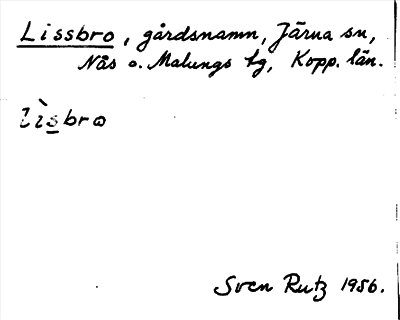 Lissbro, gårdsnamn, Järna sn,
Nås o. Malungs tg, Kopp. län.
lìs̲bro
Sven Rutz 1956.